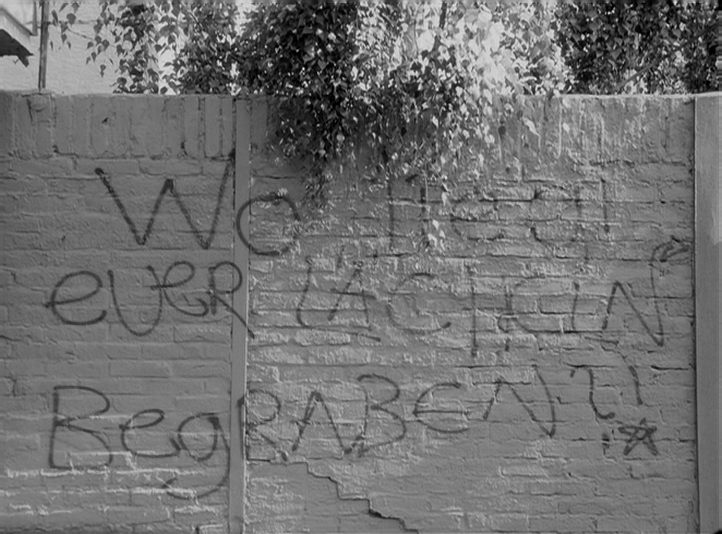 Wo liegt
EUER LÄCHELN
BegRABEN?!